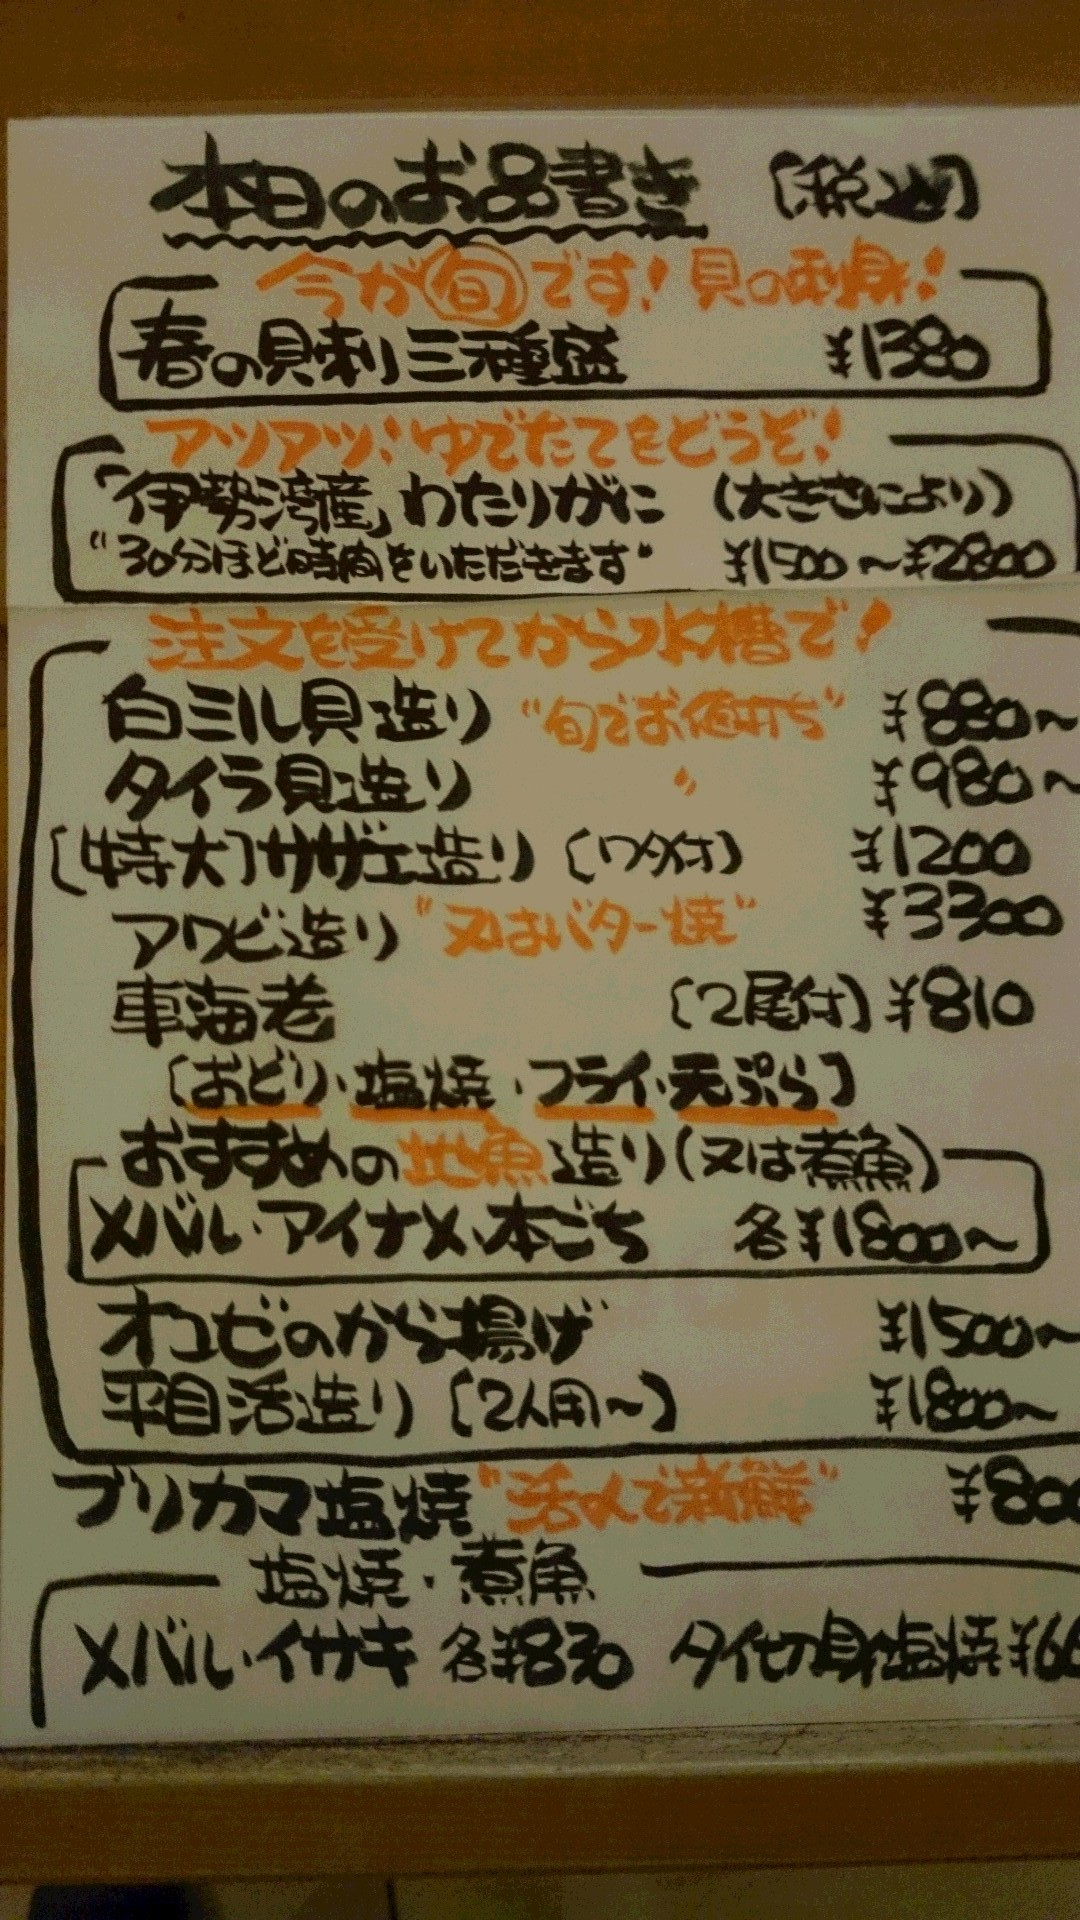 本日のお品書き [税込]
今が旬です!貝の刺身!
春の貝刺し三種盛 ¥1380
アツアツ!ゆでたてをどうぞ!
「伊勢湾産」わたりがに (大きさにより)
"30分ほど時間をいただきます" ¥1500〜¥2800
注文を受けてから水槽で!
白ミル貝造り "旬でお値打ち" ¥880〜
タイラ貝造り 〃 ¥980〜
[特大]サザエ造り [ワタ付] ¥1200
アワビ造り "又はバター焼" ¥3300
車海老 [2尾付] ¥810
[おどり・塩焼・フライ・天ぷら]
おすすめの地魚造り(又は煮魚)
メバル・アイナメ・本ごち 各¥1800〜
オコゼのから揚げ ¥1500〜
平目活造り [2人用〜] ¥1800〜
ブリカマ塩焼 "活〆で新鮮" ¥800
塩焼・煮魚
メバル・イサキ 各¥830 タイ切り身塩焼 ¥6